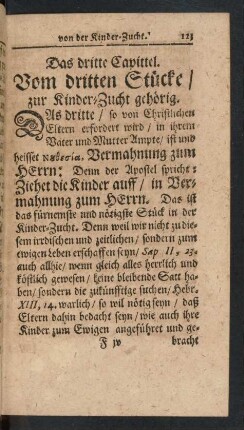 von der Kinder-Zucht. 123
Das dritte Capittel.
Vom dritten Stücke /
zur Kinder-Zucht gehörig.
Das dritte / so von Christlichen
Eltern erfordert wird / in ihrem
Vater und Mutter Ampte / ist und
heisset νουθεσία. Vermahnung zum
HErrn: Denn der Apostel spricht:
Ziehet die Kinder auff / in Ver-
mahnung zum HErrn. Das ist
das fürnemste und nötigste Stück in der
Kinder-Zucht. Denn weil wir nicht zu die-
sem irrdischen und zeitlichen / sondern zum
ewigen Leben erschaffen seyn / Sap II, 23.
auch allhie / wenn gleich alles herrlich und
köstlich gewesen / keine bleibende Satt ha-
ben / sondern die zukünfftige suchen / Hebr.
XIII, 14. warlich / so wil nötig seyn / daß
Eltern dahin bedacht seyn / wie auch ihre
Kinder zum Ewigen angeführet und ge-
F iv bracht